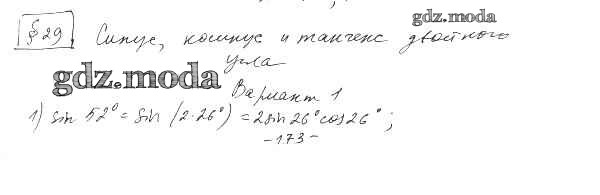 gdz.moda
§ 29 Синус, косинус и тангенс двойного
угла
gdz.moda
Вариант 1
1) sin 52° = sin (2·26°) = 2sin 26° cos 26° ;
-173-